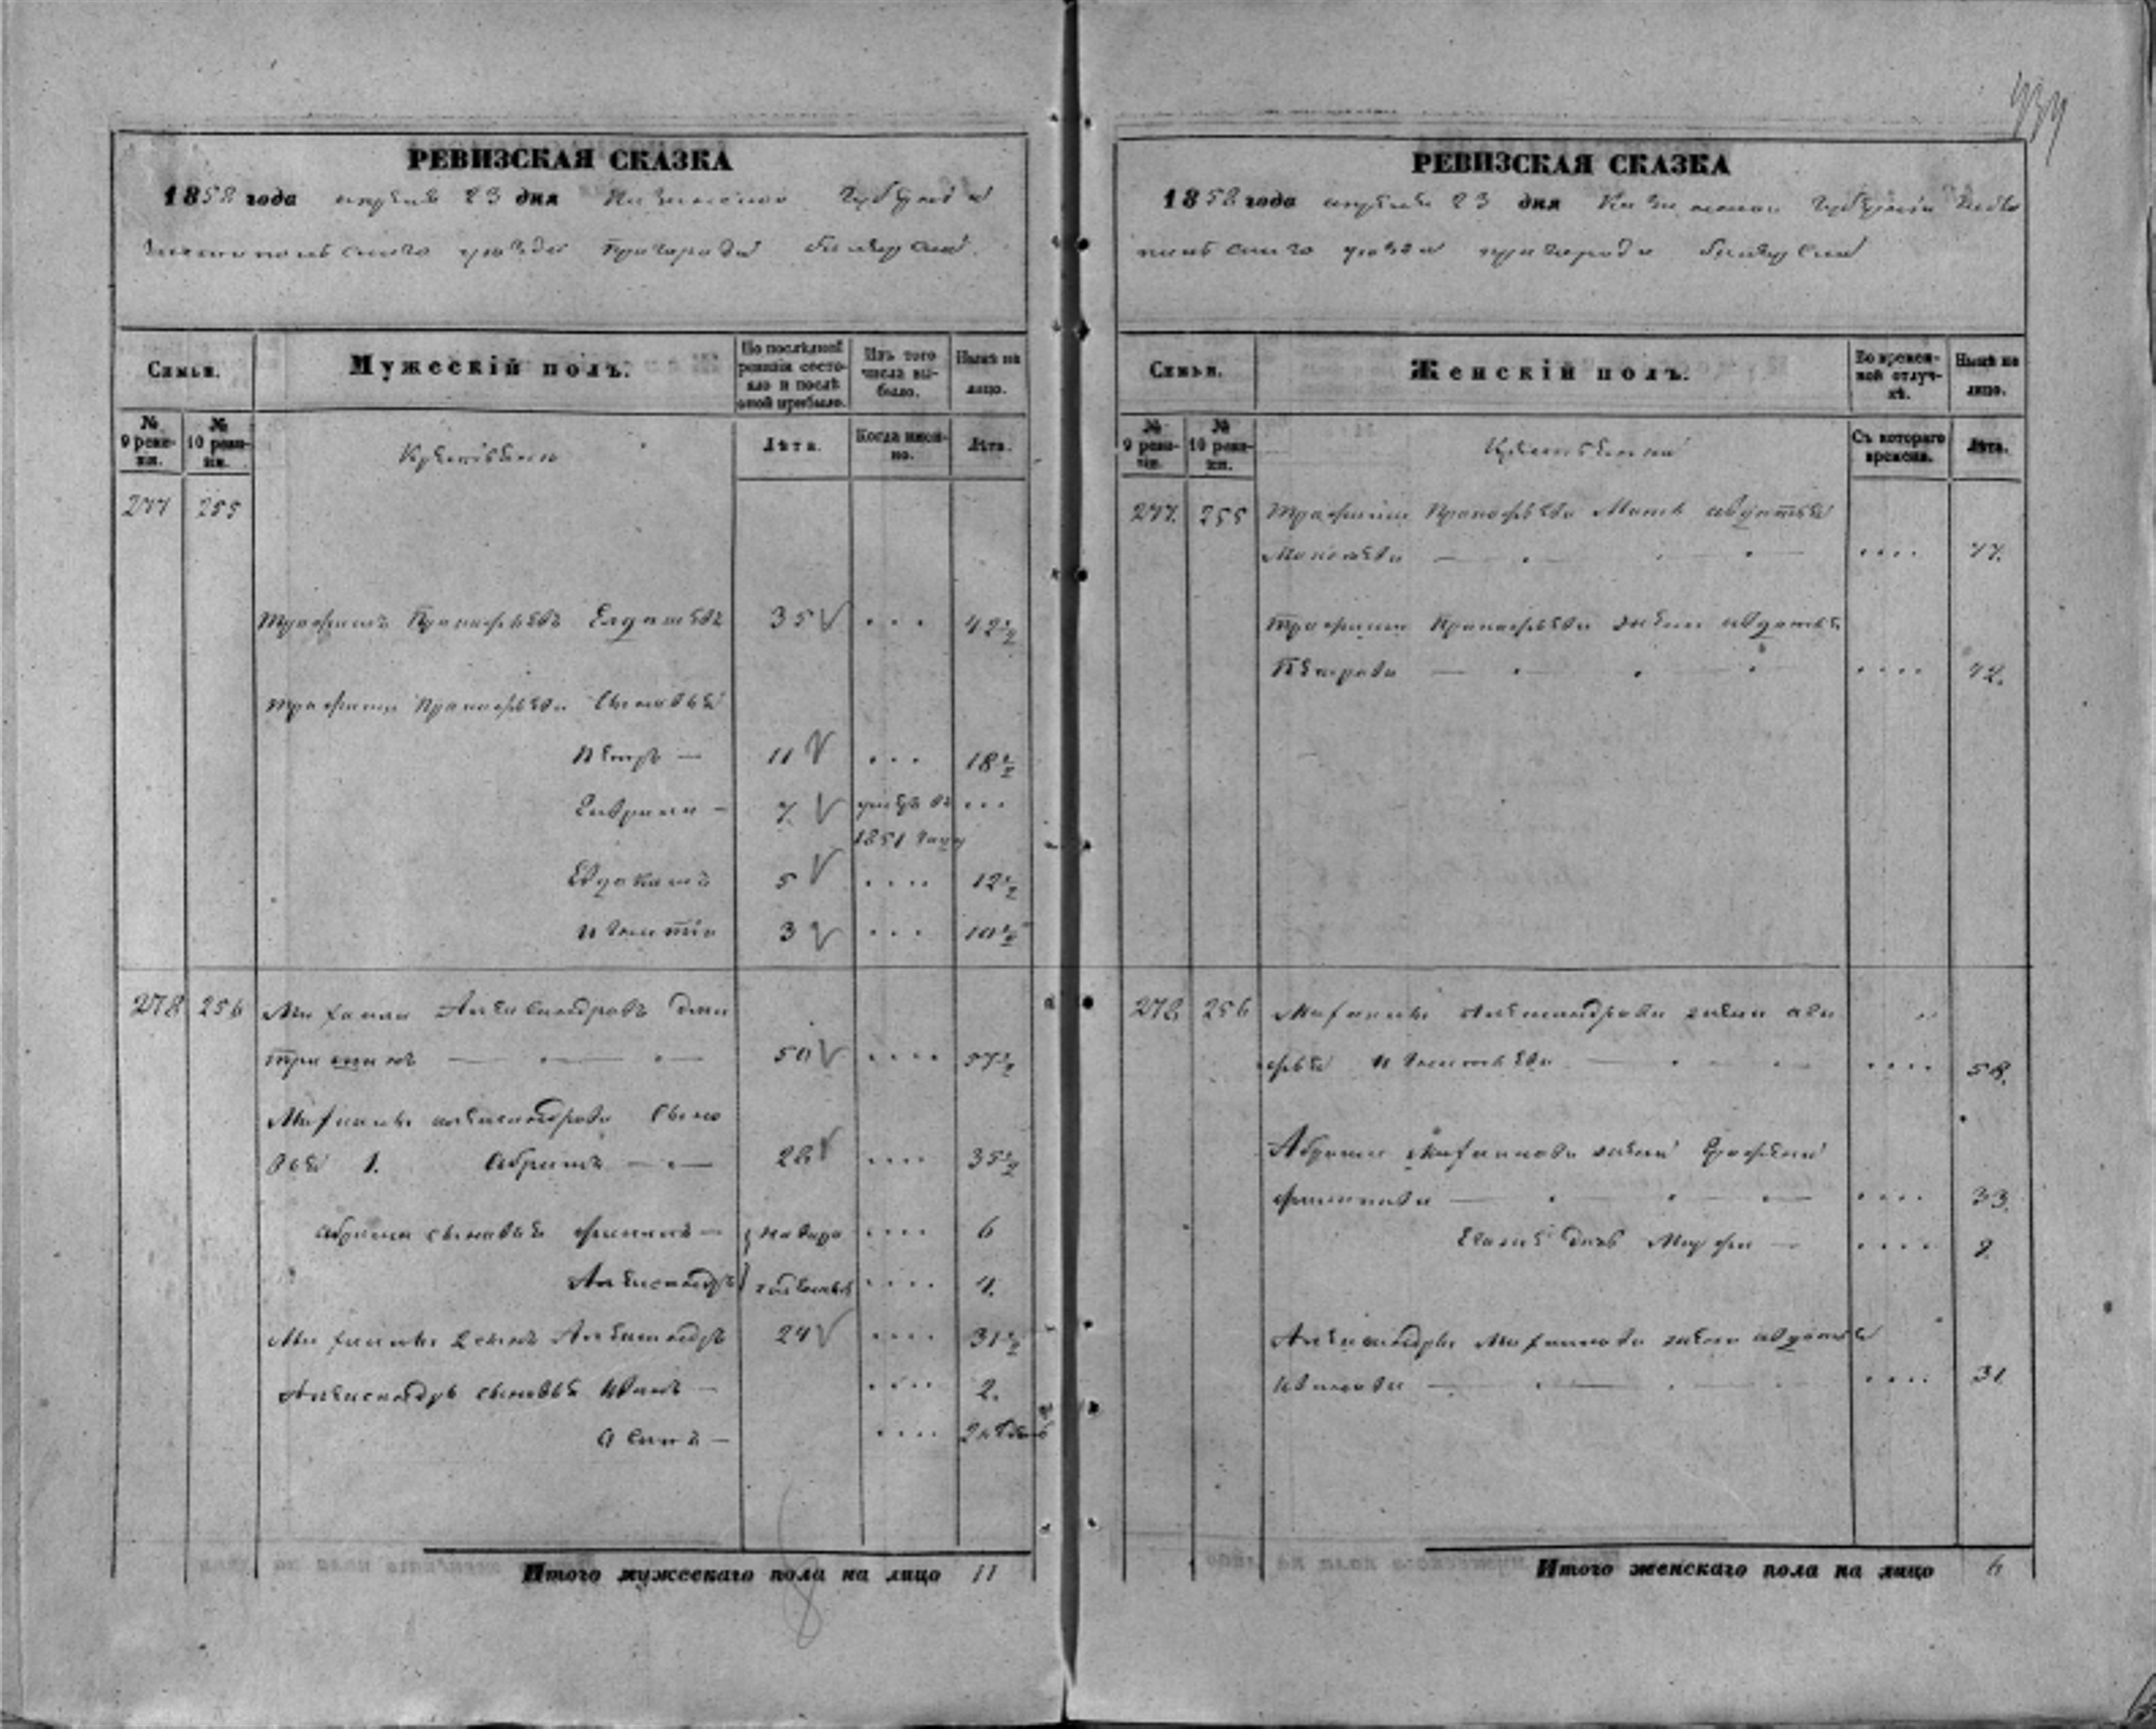 РЕВИЗСКАЯ СКАЗКА
1858 года апреля 23 дня Казанской Губернии
Чистопольского уезда Пригорода Билярска
Семьи.
Мужескій полъ.
По послѣдней ревизіи состояло и послѣ оной прибыло.
Изъ того числа выбыло.
Нынѣ на лицо.
№ 9 ревизіи.
№ 10 ревизіи.
Лѣта.
Когда именно.
Лѣта.
Крестьяне
277 255
Трофимъ Прокофьевъ 35 42 1/2
Трофима Прокофьева сыновья
Петръ — 11 18 1/2
Гаврила — 7 умеръ въ
1851 году
Евдокимъ 5 12 1/2
Игнатій 3 10 1/2
278 256 Михаила Александровъ Дми
тришинъ 50 57 1/2
Михаилы Александрова сыно
вья 1. Абрамъ 28 35 1/2
Абрама сыновья Филипъ — 6
Александръ 4
Михаилы 2 сынъ Александръ 24 31 1/2
Александра сыновья Иванъ — 2.
Осипъ —
Итого мужескаго пола на лицо 11
РЕВИЗСКАЯ СКАЗКА
1858 года апреля 23 дня Казанской Губернии Чисто
польского уезда пригорода Билярска
Семьи.
Женскій полъ.
Во временной отлучкѣ.
Нынѣ на лицо.
№ 9 ревизіи.
№ 10 ревизіи.
Съ котораго времени.
Лѣта.
Крестьяне
277. 255 Трофима Прокофьева Мать Авдотья
77.
Трофима Прокофьева жена Авдотья
Петрова 42.
278 256 Михаилы Александрова жена Ага
фья Игнатьева 58.
Абрама Михаилова жена
Филипова 33.
дочь Марфа — 9.
Александры Михаилова жена Авдотья
Иванова 31
Итого женскаго пола на лицо 6